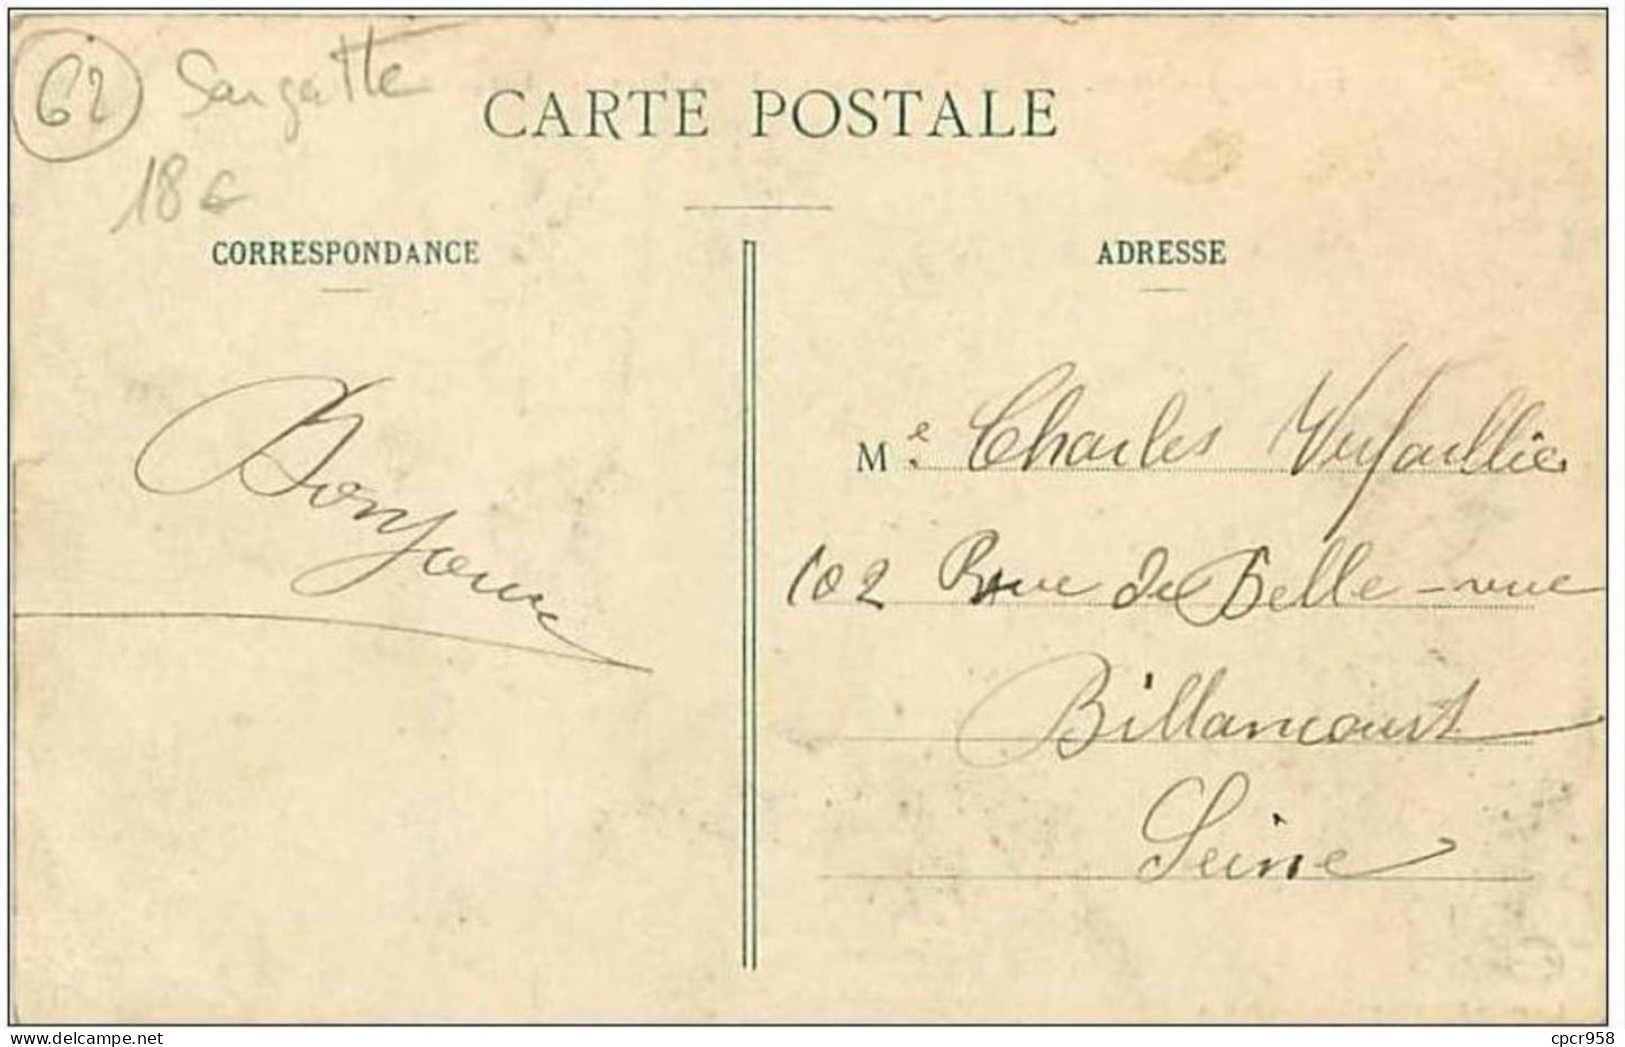 62 Sangatte
18 €
CARTE POSTALE
CORRESPONDANCE
ADRESSE
Bonjour
Me Charles Verfaillie
102 Rue de Belle-vue
Billancourt
Seine
www.delcampe.net
cpcr958